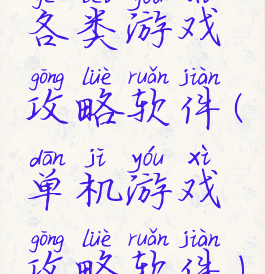 gè lèi yóu xì
各类游戏
gōng lüè ruǎn jiàn
攻略软件(
dān jī yóu xì
单机游戏
gōng lüè ruǎn jiàn
攻略软件)